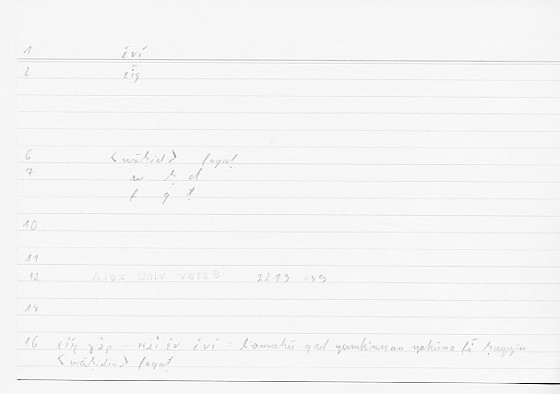 1 ἑνί
2 εἷς
6 <wāḥid> faqaṭ
7 w ḥ d
f q ṭ
10
11
12 Alex Univ vert B 2213
14
16 εἷς γὰρ – καὶ ἐν ἑνί : qad yumkinu an yakūna fī
<wāḥidin> faqaṭ